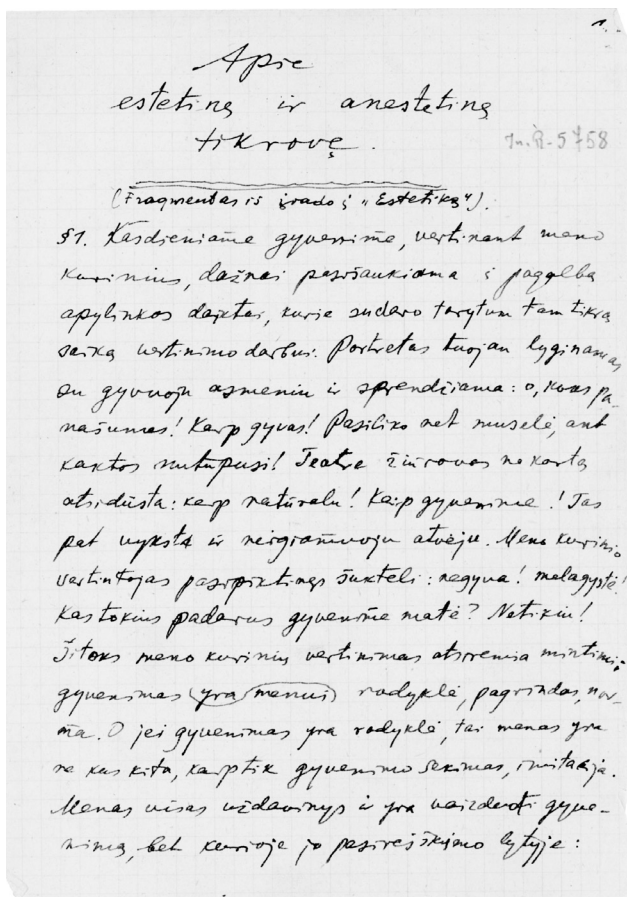 1.
Apie
estetinę ir anestetinę
tikrovę.
In. R-5758
(Fragmentas iš įvado į „Estetiką“).
§1. Kasdieniame gyvenime, vertinant meno
kurinius, dažnai pasišaukiama į pagalbą
apylinkos daiktai, kurie sudaro tarytum tam tikrą
saiką vertinimo darbui. Portretas tuojau lyginamas
su gyvuoju asmeniu ir sprendžiama: o, koks pa-
našumas! Kaip gyvas! Pasiliko net muselė, ant
kaktos nutūpusi! Teatre žiūrovas ne kartą
atsidūsta: kaip natūralu! Kaip gyvenime! Tas
pat vyksta ir neigiamuoju atveju. Meno kurinio
vertintojas pasipiktinęs šukteli: negyva! melagystė!
Kas tokius padarus gyvenime matė? Netikiu!
Šitoks meno kurinių vertinimas atsiremia mintimi:
gyvenimas yra menui rodyklė, pagrindas, nor-
ma. O jei gyvenimas yra rodyklė, tai menas yra
ne kas kita, kaip tik gyvenimo sekimas, imitacija.
Menas visas uždavinys ir yra vaizduoti gyve-
nimą, bet kurioje jo pasireiškimo lytyje: